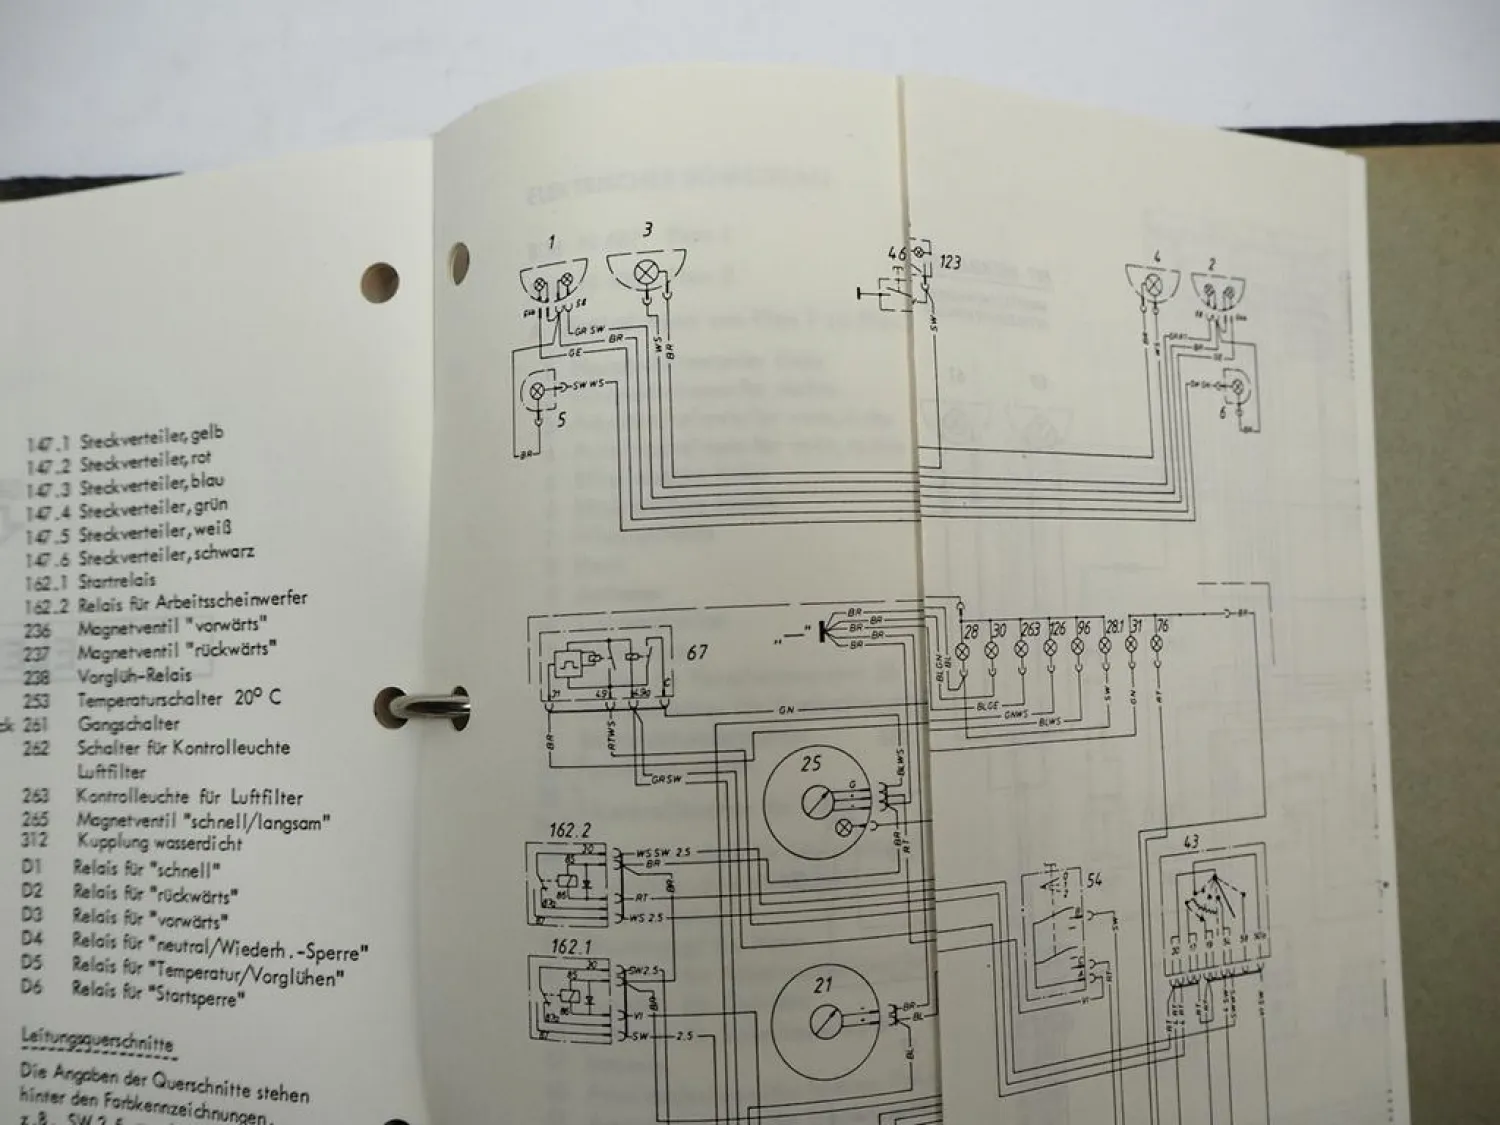 147.1 Steckverteiler, gelb
147.2 Steckverteiler, rot
147.3 Steckverteiler, blau
147.4 Steckverteiler, grün
147.5 Steckverteiler, weiß
147.6 Steckverteiler, schwarz
162.1 Startrelais
162.2 Relais für Arbeitsscheinwerfer
236 Magnetventil "vorwärts"
237 Magnetventil "rückwärts"
238 Vorglüh-Relais
253 Temperaturschalter 20° C
261 Gangschalter
262 Schalter für Kontrolleuchte
Luftfilter
263 Kontrolleuchte für Luftfilter
265 Magnetventil "schnell/langsam"
312 Kupplung wasserdicht
D1 Relais für "schnell"
D2 Relais für "rückwärts"
D3 Relais für "vorwärts"
D4 Relais für "neutral/Wiederh.-Sperre"
D5 Relais für "Temperatur/Vorglühen"
D6 Relais für "Startsperre"
Leitungsquerschnitte
Die Angaben der Querschnitte stehen
hinter den Farbkennzeichnungen,
1 3 46 123 4 2
GR SW
BR
GE
WS
BR
SW
BR
WS
BR
GE
SW WS
5
6
BR
BR
67
"—"
BR
BR
BR
BR
28 30 263 126 96 28.1 31 76
BR
BL GN
BL
31 49 49a C
GN
BL GE
GN WS
BL WS
SW
GN
RT
BR
RT WS
GR SW
25
G
BL WS
BR
RT
162.2
30
85
86
87a
87
WS SW 2.5
BR
RT
WS 2.5
BR
54
SW
RT
VI
43
162.1
30
85
86
87a
87
SW 2.5
BR
VI
SW 2.5
21
BR
BL
BL